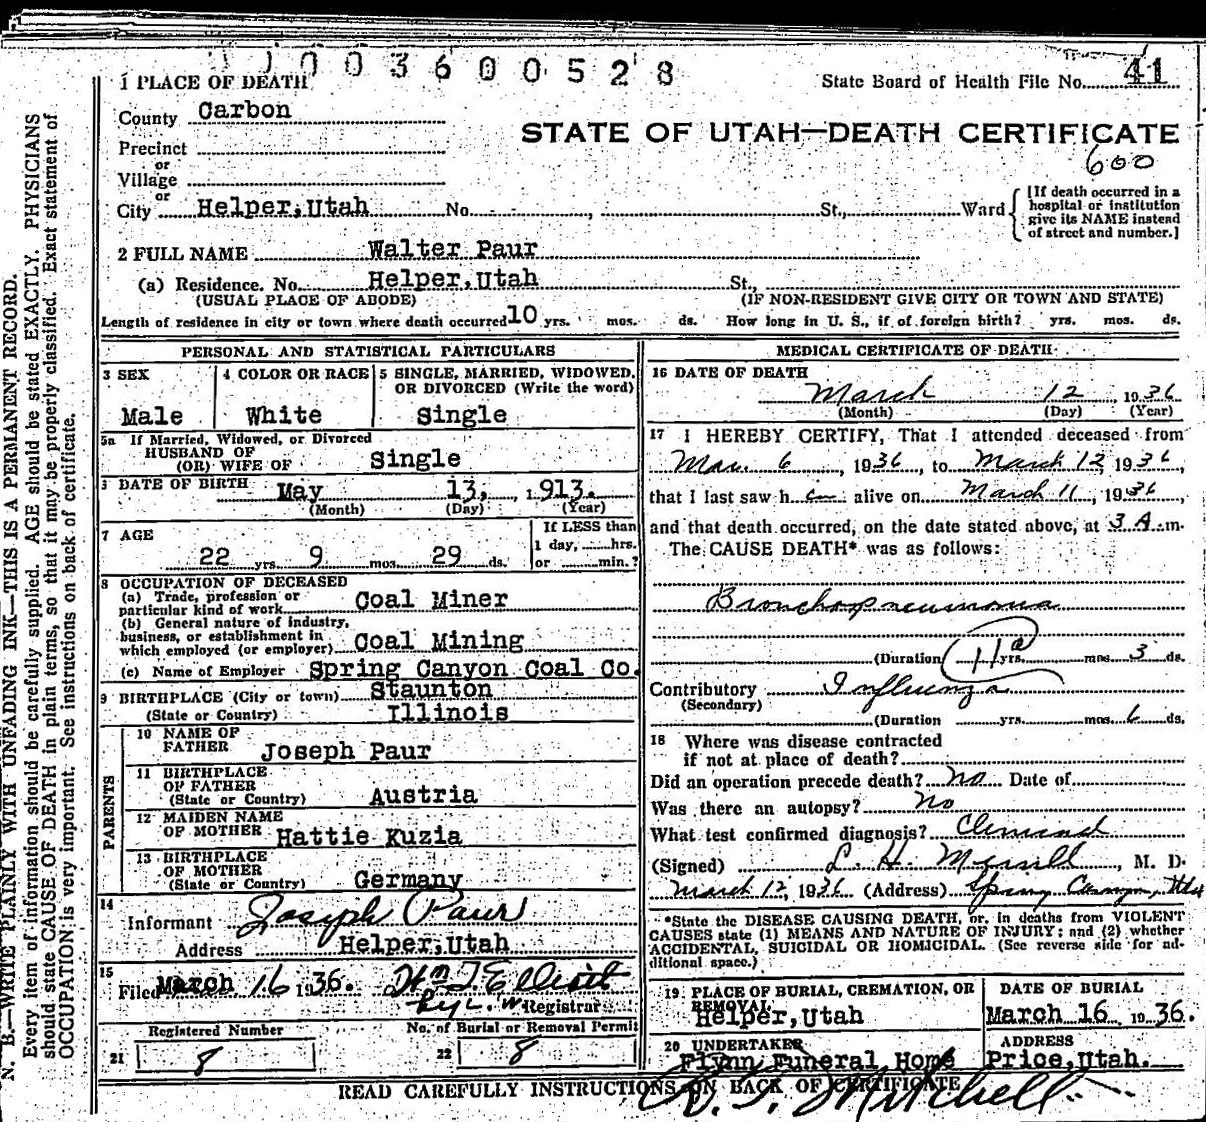 0 0 3 6 0 0 5 2 8
1 PLACE OF DEATH
State Board of Health File No. 41
County Carbon
STATE OF UTAH—DEATH CERTIFICATE
600
Precinct
or
Village
or
City Helper, Utah No. - - , St., Ward
[If death occurred in a
hospital or institution
give its NAME instead
of street and number.]
2 FULL NAME Walter Paur
(a) Residence. No. Helper, Utah St.,
(USUAL PLACE OF ABODE) (IF NON-RESIDENT GIVE CITY OR TOWN AND STATE)
Length of residence in city or town where death occurred 10 yrs. mos. ds. How long in U. S., if of foreign birth? yrs. mos. ds.
PERSONAL AND STATISTICAL PARTICULARS
3 SEX
Male
4 COLOR OR RACE
White
5 SINGLE, MARRIED, WIDOWED,
OR DIVORCED (Write the word)
Single
5a If Married, Widowed, or Divorced
HUSBAND OF
(OR) WIFE OF Single
DATE OF BIRTH May 13, 1913.
(Month) (Day) (Year)
7 AGE
22 yrs. 9 mos. 29 ds.
If LESS than
1 day, hrs.
or min.?
8 OCCUPATION OF DECEASED
(a) Trade, profession or
particular kind of work Coal Miner
(b) General nature of industry,
business, or establishment in
which employed (or employer) Coal Mining
(c) Name of Employer Spring Canyon Coal Co.
9 BIRTHPLACE (City or town) Staunton
(State or Country) Illinois
PARENTS
10 NAME OF
FATHER Joseph Paur
11 BIRTHPLACE
OF FATHER
(State or Country) Austria
12 MAIDEN NAME
OF MOTHER Hattie Kuzia
13 BIRTHPLACE
OF MOTHER
(State or Country) Germany
14
Informant Joseph Paur
Address Helper, Utah
15
Filed March 16 1936. Wm T Elliott
by L. W. Registrar
Registered Number
21 8
No. of Burial or Removal Permit
22 8
MEDICAL CERTIFICATE OF DEATH
16 DATE OF DEATH
March 12, 1936
(Month) (Day) (Year)
17 I HEREBY CERTIFY, That I attended deceased from
Mar. 6, 1936, to March 12 1936,
that I last saw h alive on March 11, 1936,
and that death occurred, on the date stated above, at 3 A. m.
The CAUSE DEATH* was as follows:
Bronchopneumonia
(Duration yrs. mos. 3 ds.
11a
Contributory Influenza
(Secondary)
(Duration yrs. mos. 6 ds.
18 Where was disease contracted
if not at place of death?
Did an operation precede death? no Date of
Was there an autopsy? no
What test confirmed diagnosis? Clinical
(Signed) L. H. Merrill, M. D.
March 12, 1936 (Address) Spring Canyon, Utah
*State the DISEASE CAUSING DEATH, or, in deaths from VIOLENT
CAUSES state (1) MEANS AND NATURE OF INJURY; and (2) whether
ACCIDENTAL, SUICIDAL OR HOMICIDAL. (See reverse side for ad-
ditional space.)
19 PLACE OF BURIAL, CREMATION, OR
REMOVAL
Helper, Utah
DATE OF BURIAL
March 16 1936.
20 UNDERTAKER
Flynn Funeral Home
ADDRESS
Price, Utah.
READ CAREFULLY INSTRUCTIONS ON BACK OF CERTIFICATE
Mitchell
N. B.—WRITE PLAINLY WITH UNFADING INK—THIS IS A PERMANENT RECORD.
Every item of information should be carefully supplied. AGE should be stated EXACTLY. PHYSICIANS
should state CAUSE OF DEATH in plain terms, so that it may be properly classified. Exact statement of
OCCUPATION is very important. See instructions on back of certificate.